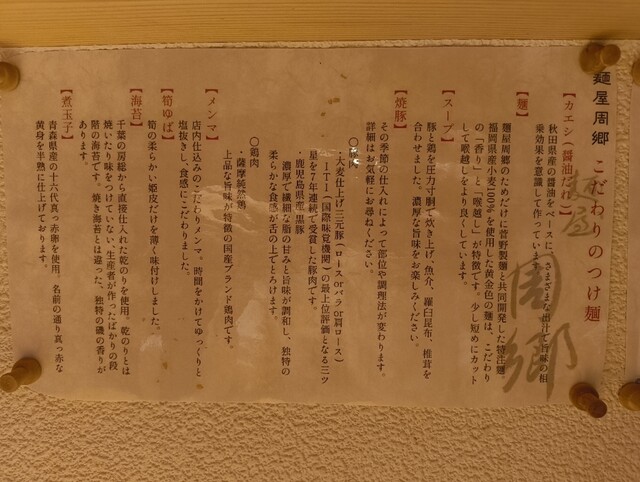 麺屋周郷 こだわりのつけ麺
【カエシ(醤油だれ)】
秋田県産の醤油をベースに、さまざまな出汁で旨味の相
乗効果を意識して作っています。
【麺】
麺屋周郷のためだけに菅野製麺と共同開発した特注麺。
福岡県産小麦100%を使用した黄金色の麺は、こだわり
の「香り」と「喉越し」が特徴です。少し短めにカット
して喉越しをより良くしています。
【スープ】
豚と鶏を圧力寸胴で炊き上げ、魚介、羅臼昆布、椎茸を
合わせました。濃厚な旨味をお楽しみください。
【焼豚】
その季節の仕入れによって部位や調理法が変わります。
詳細はお気軽にお尋ねください。
〇豚肉
・大麦仕上げ三元豚(ロースorバラor肩ロース)
ITI(国際味覚機関)の最上位評価となる三ツ
星を7年連続で受賞した豚肉です。
・鹿児島県産 黒豚
濃厚で繊細な脂の甘みと旨味が調和し、独特の
柔らかな食感が舌の上でとろけます。
〇鶏肉
・薩摩純然鶏
上品な旨味が特徴の国産ブランド鶏肉です。
【メンマ】
店内仕込みのこだわりメンマ。時間をかけてゆっくりと
塩抜きし、食感にこだわりました。
【筍ゆば】
筍の柔らかい姫皮だけを薄く味付けしました。
【海苔】
千葉の房総から直接仕入れた乾のりを使用。乾のりとは
焼いたり味をつけていない、生産者が作ったばかりの段
階の海苔です。焼き海苔とは違った、独特の磯の香りが
あります。
【煮玉子】
青森県産の十六代真っ赤卵を使用。名前の通り真っ赤な
黄身を半熟に仕上げております。
麺屋
周郷